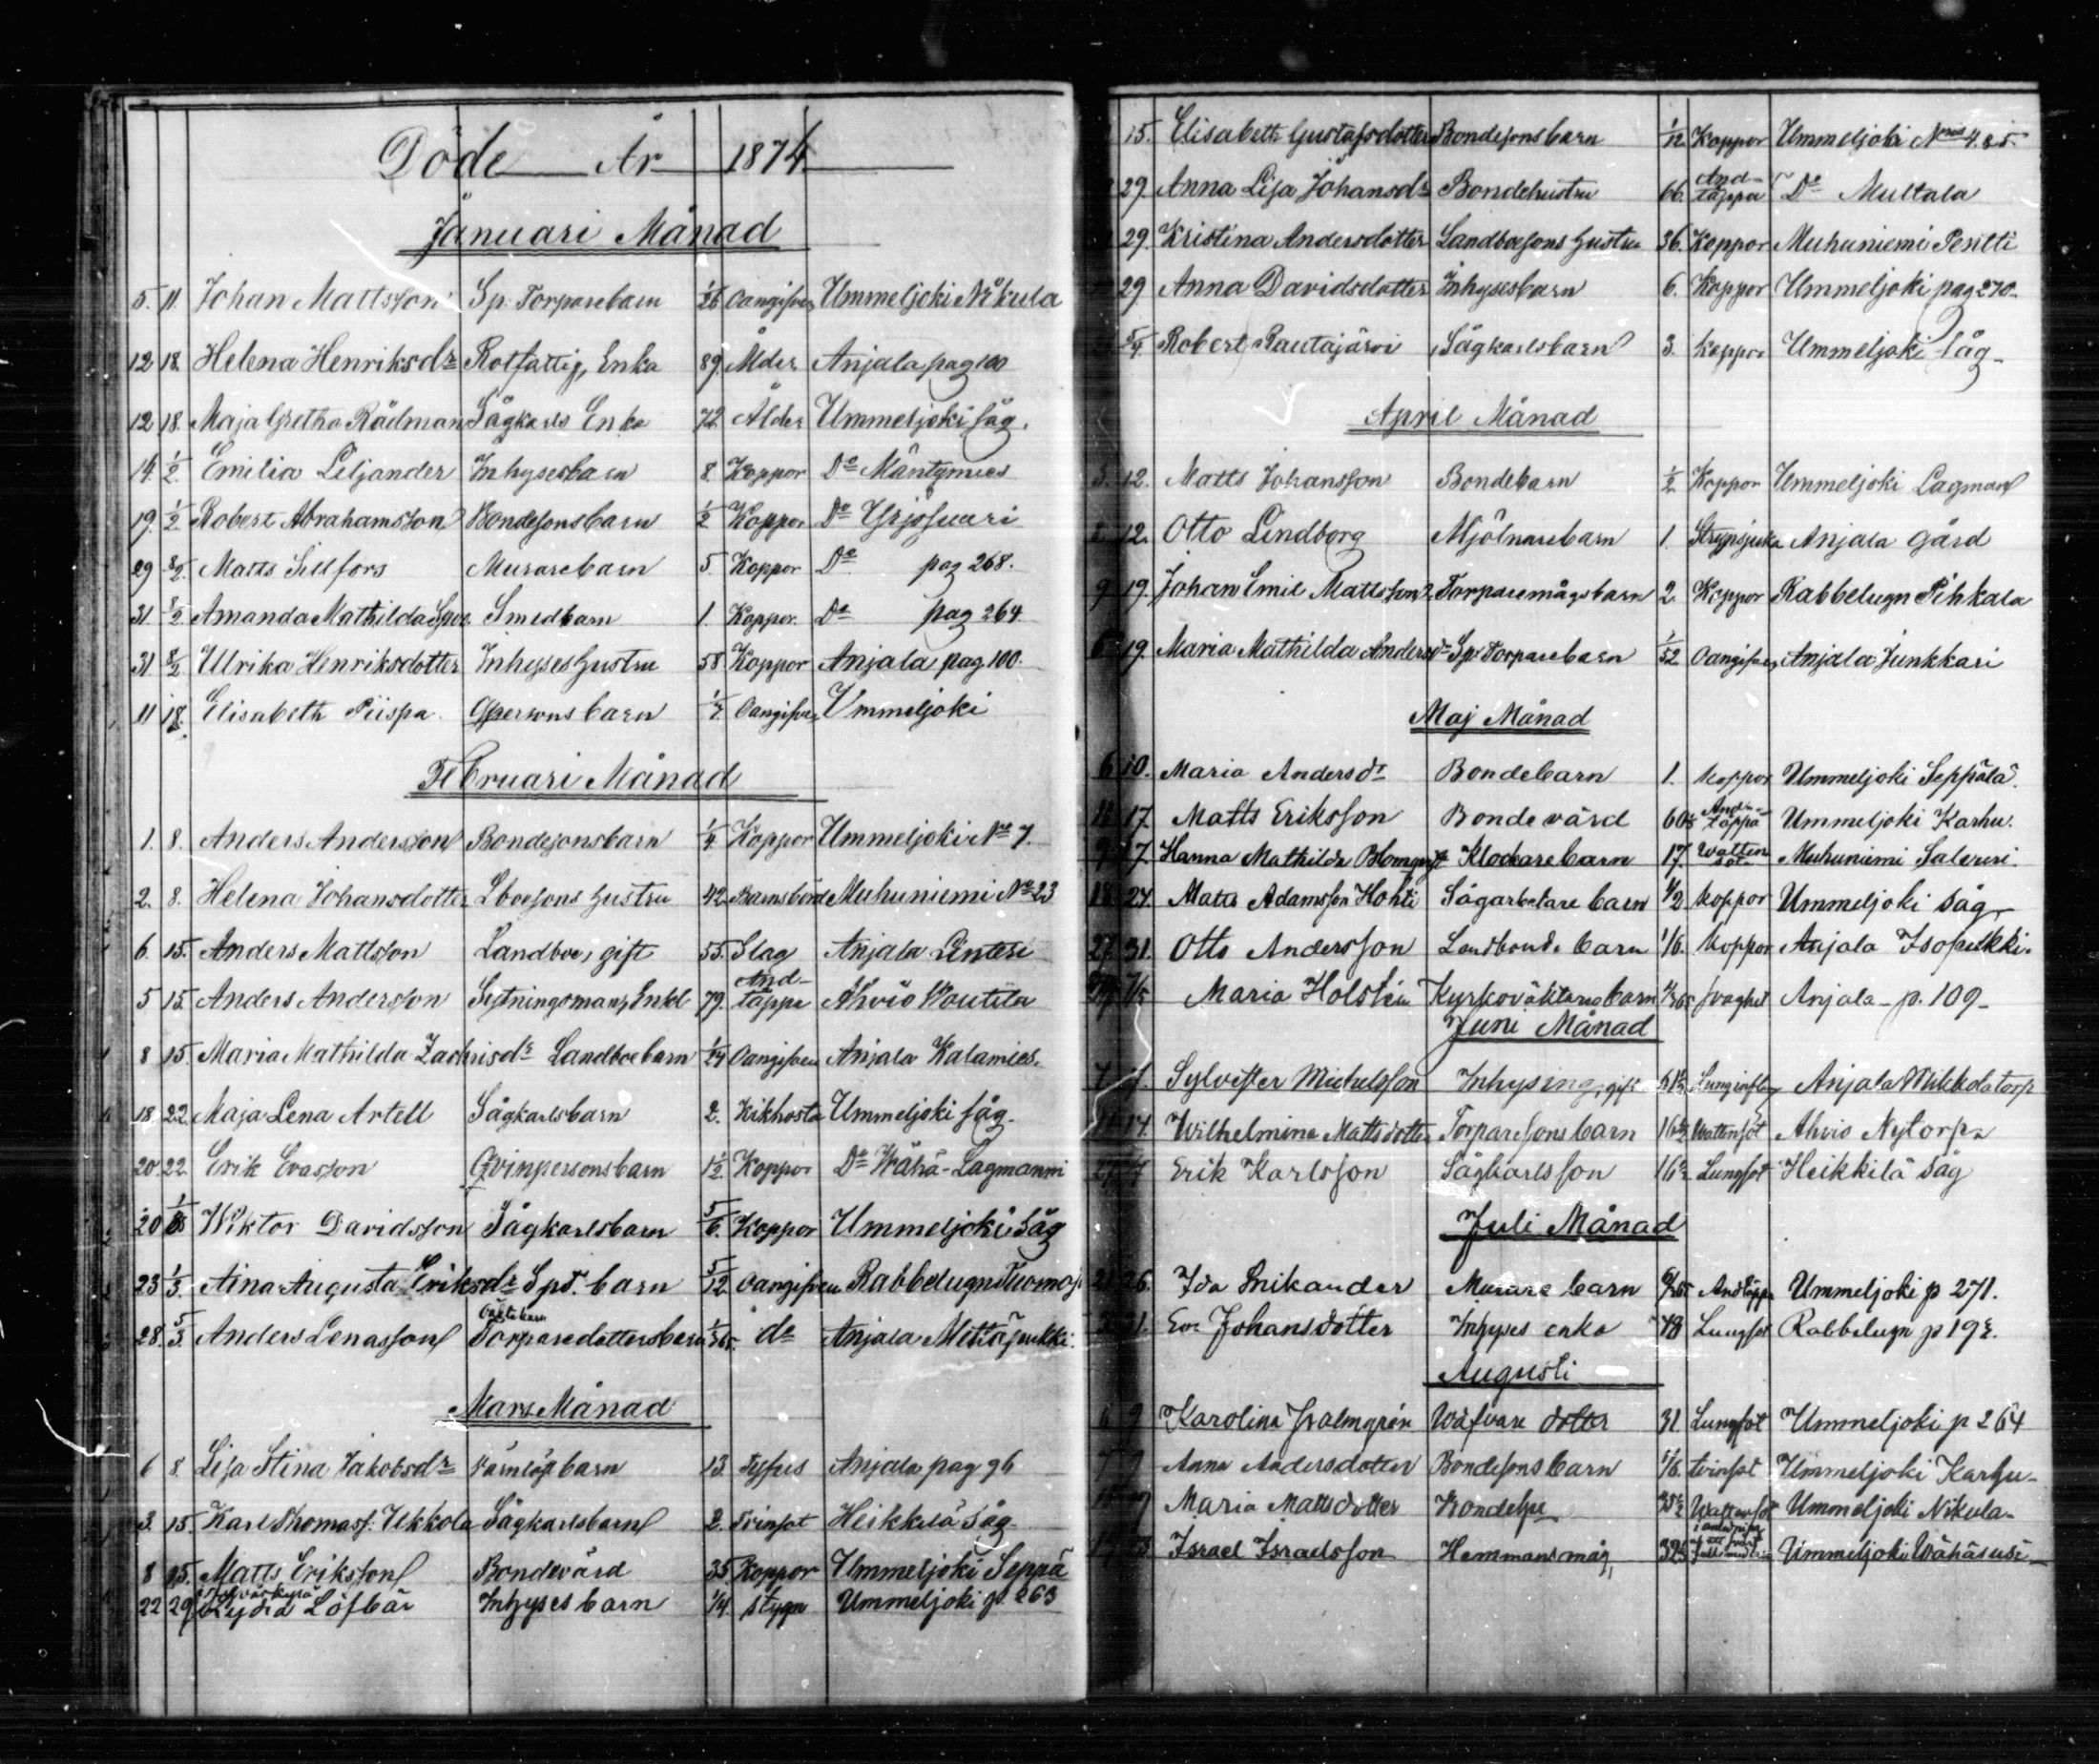 Döde År 1874.
Januari Månad
5. 11. Johan Mattsson Sp. Torparebarn 1/26 Oangifven Ummeljoki Nikula
12 18. Helena Henriksdr Rotfattig, Enka 89. Ålder Anjala pag 100
12 18. Maja Gretha Rådman Sågkarls Enka 72. Ålder Ummeljoki såg.
14. 1/2. Emilia Liljander Inhysesbarn 8. Koppor Do Mäntymies
19. 1/2 Robert Abrahamsson Bondesonsbarn 1/2 Koppor Do Yrjösuuri
29 8/2. Matts Sillfors Murarebarn 5. Koppor Do pag 268.
31 8/2. Amanda Mathilda Smedbarn 1. Koppor. Do pag 264
31 8/2 Ulrika Henriksdotter Inhyses Hustru 58 Koppor Anjala pag 100.
11 18. Elisabeth Piispa. Qpersonsbarn Oangifven Ummeljoki
Februari Månad
1. 8. Anders Andersson Bondesonsbarn 1/4 Koppor Ummeljoki No 7.
2. 8. Helena Johansdotter Lboesons Hustru 42. Barnsbörd Muhuniemi No 23
6. 15. Anders Mattsson Landboe, gift 55. Slag Anjala Anteri
5 15. Anders Andersson Sytningsman, Enkl 79. And-täppa Ahvio Woutila
8 15. Maria Mathilda Zachrisdr Landboebarn 1/24 Oangifven Anjala Kalamies.
18. 22. Maja Lena Artell Sågkarlsbarn 2. Kikhosta Ummeljoki såg.
20. 22. Erik Evasson Qvinpersonsbarn 1 1/2. Koppor Do Wähä-Lagmanni
20 1/3 Wiktor Davidsson Sågkarlsbarn 5/6. Koppor Ummeljoki Såg
23 1/3. Aina Augusta Eriksdr Spt. barn 5/12. Oangifven Rabbelugn Tuomoj
28. 5/3. Anders Lenasson Torparedottersbarn 1/365. do Anjala Mettäpukki.
Mars Månad
6 8. Lisa Stina Jakobsdr barn 13. Tyfus Anjala pag 96
3. 15. Karl Thomass. Ukkola Sågkarlsbarn 2. Tvinsot Heikkilä Såg
8 15. Matts Eriksson Bondevärd 35. Koppor Ummeljoki Seppä
22 29. Lydia Löfbär Inhysesbarn 1/4. stygn Ummeljoki p. 263
15. Elisabeth Gustafsdotter Bondesonsbarn 1/12. Koppor Ummeljoki Nris 4. & 5.
29. Anna Lisa Johansdr Bondehustru 66. And-täppa Do Multala
29. Kristina Andersdotter Landboesons Hustru 36. Koppor Muhuniemi Pentti
29 Anna Davidsdotter Inhysesbarn 6. Koppor Ummeljoki pag 270.
5/4. Robert Rautajärvi Sågkarlsbarn 3. Koppor Ummeljoki såg
April Månad
3. 12. Matts Johansson Bondebarn 1/2 Koppor Ummeljoki Lagman
12. Otto Lindborg Mjölnarebarn 1. Strypsjuka Anjala gård
9 19. Johan Emil Mattsson Torparemågsbarn 2. Koppor Rabbelugn Pihkala
19. Maria Mathilda Andersdr Sp. Torparebarn 1/52 Oangifven Anjala Junkkari
Maj Månad
6 10. Maria Andersdr Bondebarn 1. Koppor Ummeljoki Seppälä
17. Matts Eriksson Bonde värd And-täppa Ummeljoki Karhu.
17. Hanna Mathilda Blomqvist Klockarebarn 17. Watten sot Muhuniemi
18 24. Matts Adamsson Hohti Sågarbetare barn 1/2 Koppor Ummeljoki såg
27 31. Otto Andersson Landbonde barn 1/6. Koppor Anjala Isopukki.
Maria Holstén Kyrkoväktaresbarn svaghet Anjala p. 109
Juni Månad
Sylvester Michelsson Inhysing, gift Lunginfl Anjala torp
14. Wilhelmina Mattsdotter Torparesonsbarn Wattensot Ahvio Nytorp
Erik Karlsson Sågkarlsson Lungsot Heikkilä såg
Juli Månad
26. Ida Murare barn Andtäppa Ummeljoki p 271.
Eva Johansdotter Inhyses enka 48 Lungsot Rabbelugn p 19
Augusti
6 9 Karolina Wäfvare dotter 31 Lungsot Ummeljoki p 264
7 9 Anna Andersdotter Bondesonsbarn 1/6. tvinsot Ummeljoki Karhu
Maria Mattsdotter Bondehu Wattensot Ummeljoki Nikula
Israel Israelsson Hemmansmåg, Ummeljoki Wähäsusi